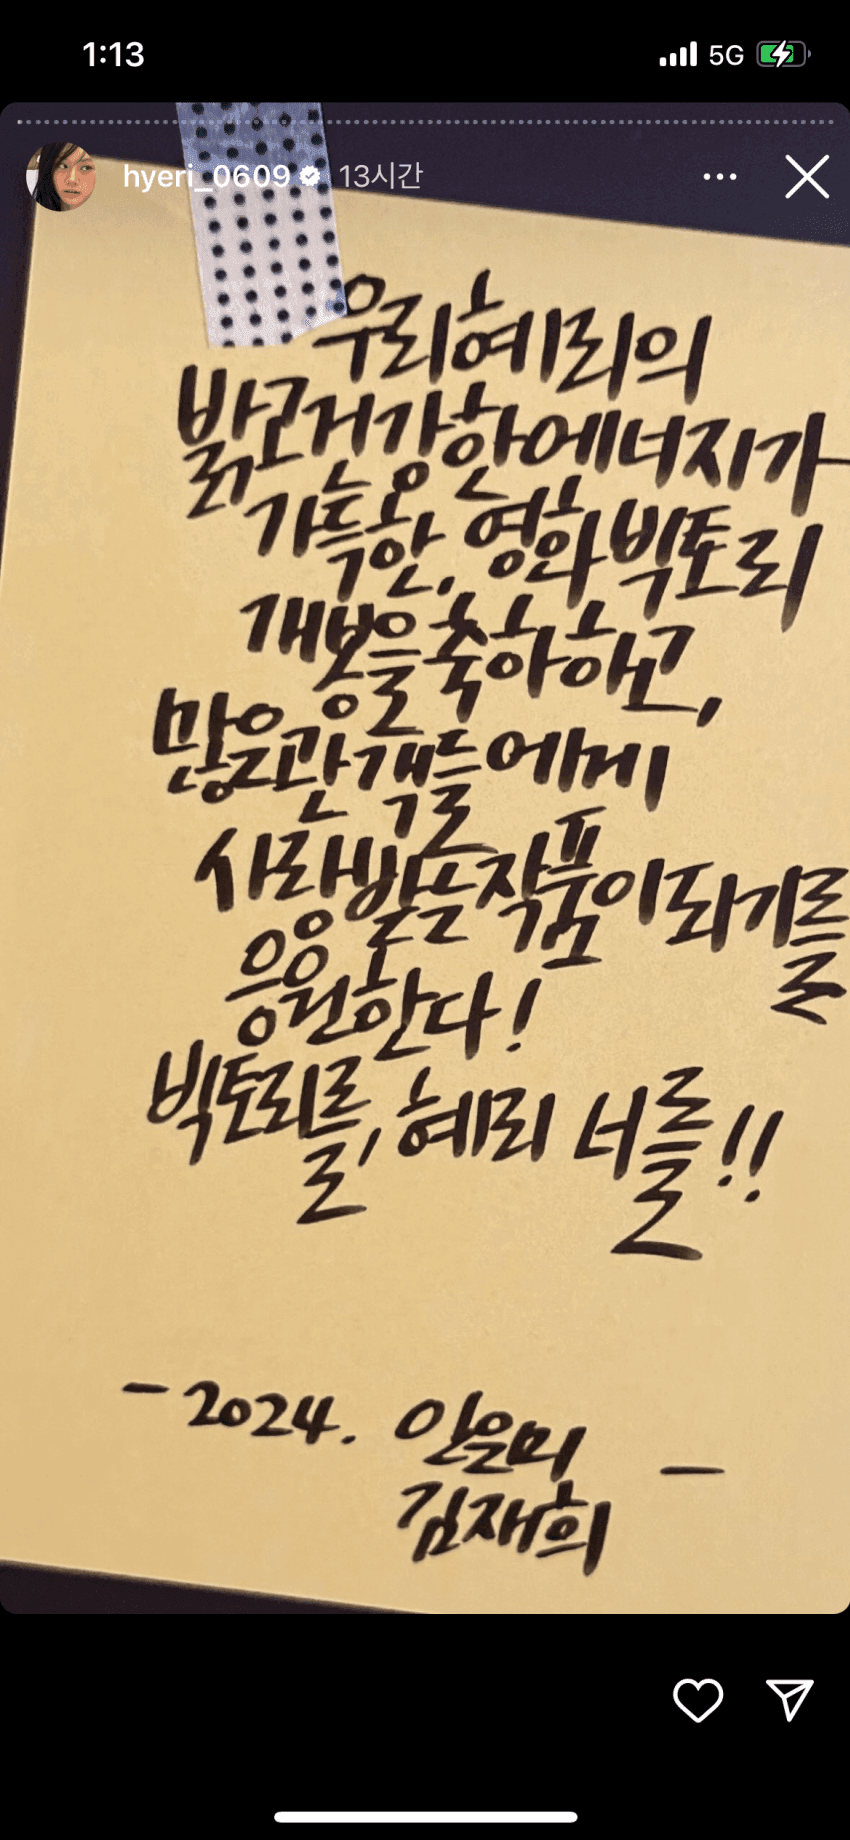 1:13
5G
hyeri_0609 13시간
우리 혜리의
밝고 건강한 에너지가
가득한, 영화 빅토리
개봉을 축하하고,
많은 관객들에게
사랑받는 작품이 되기를
응원한다!
빅토리를, 혜리 너를!!
- 2024. 안은미 -
김재희